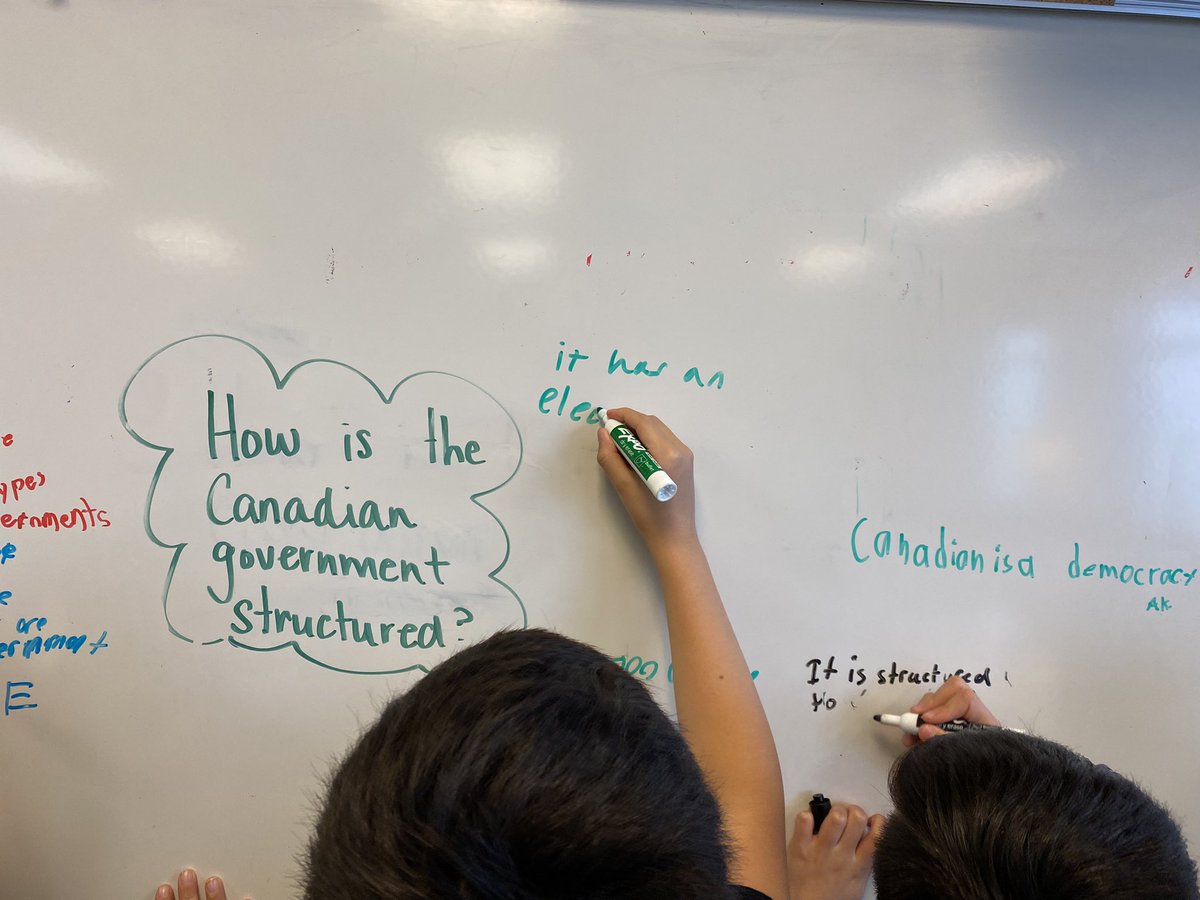 How is the
Canadian
government
structured?
it has an
elec
Canadian is a democracy
AK
It is structured
to
EXPO
e
ypes
ernments
e
are
ernment
E